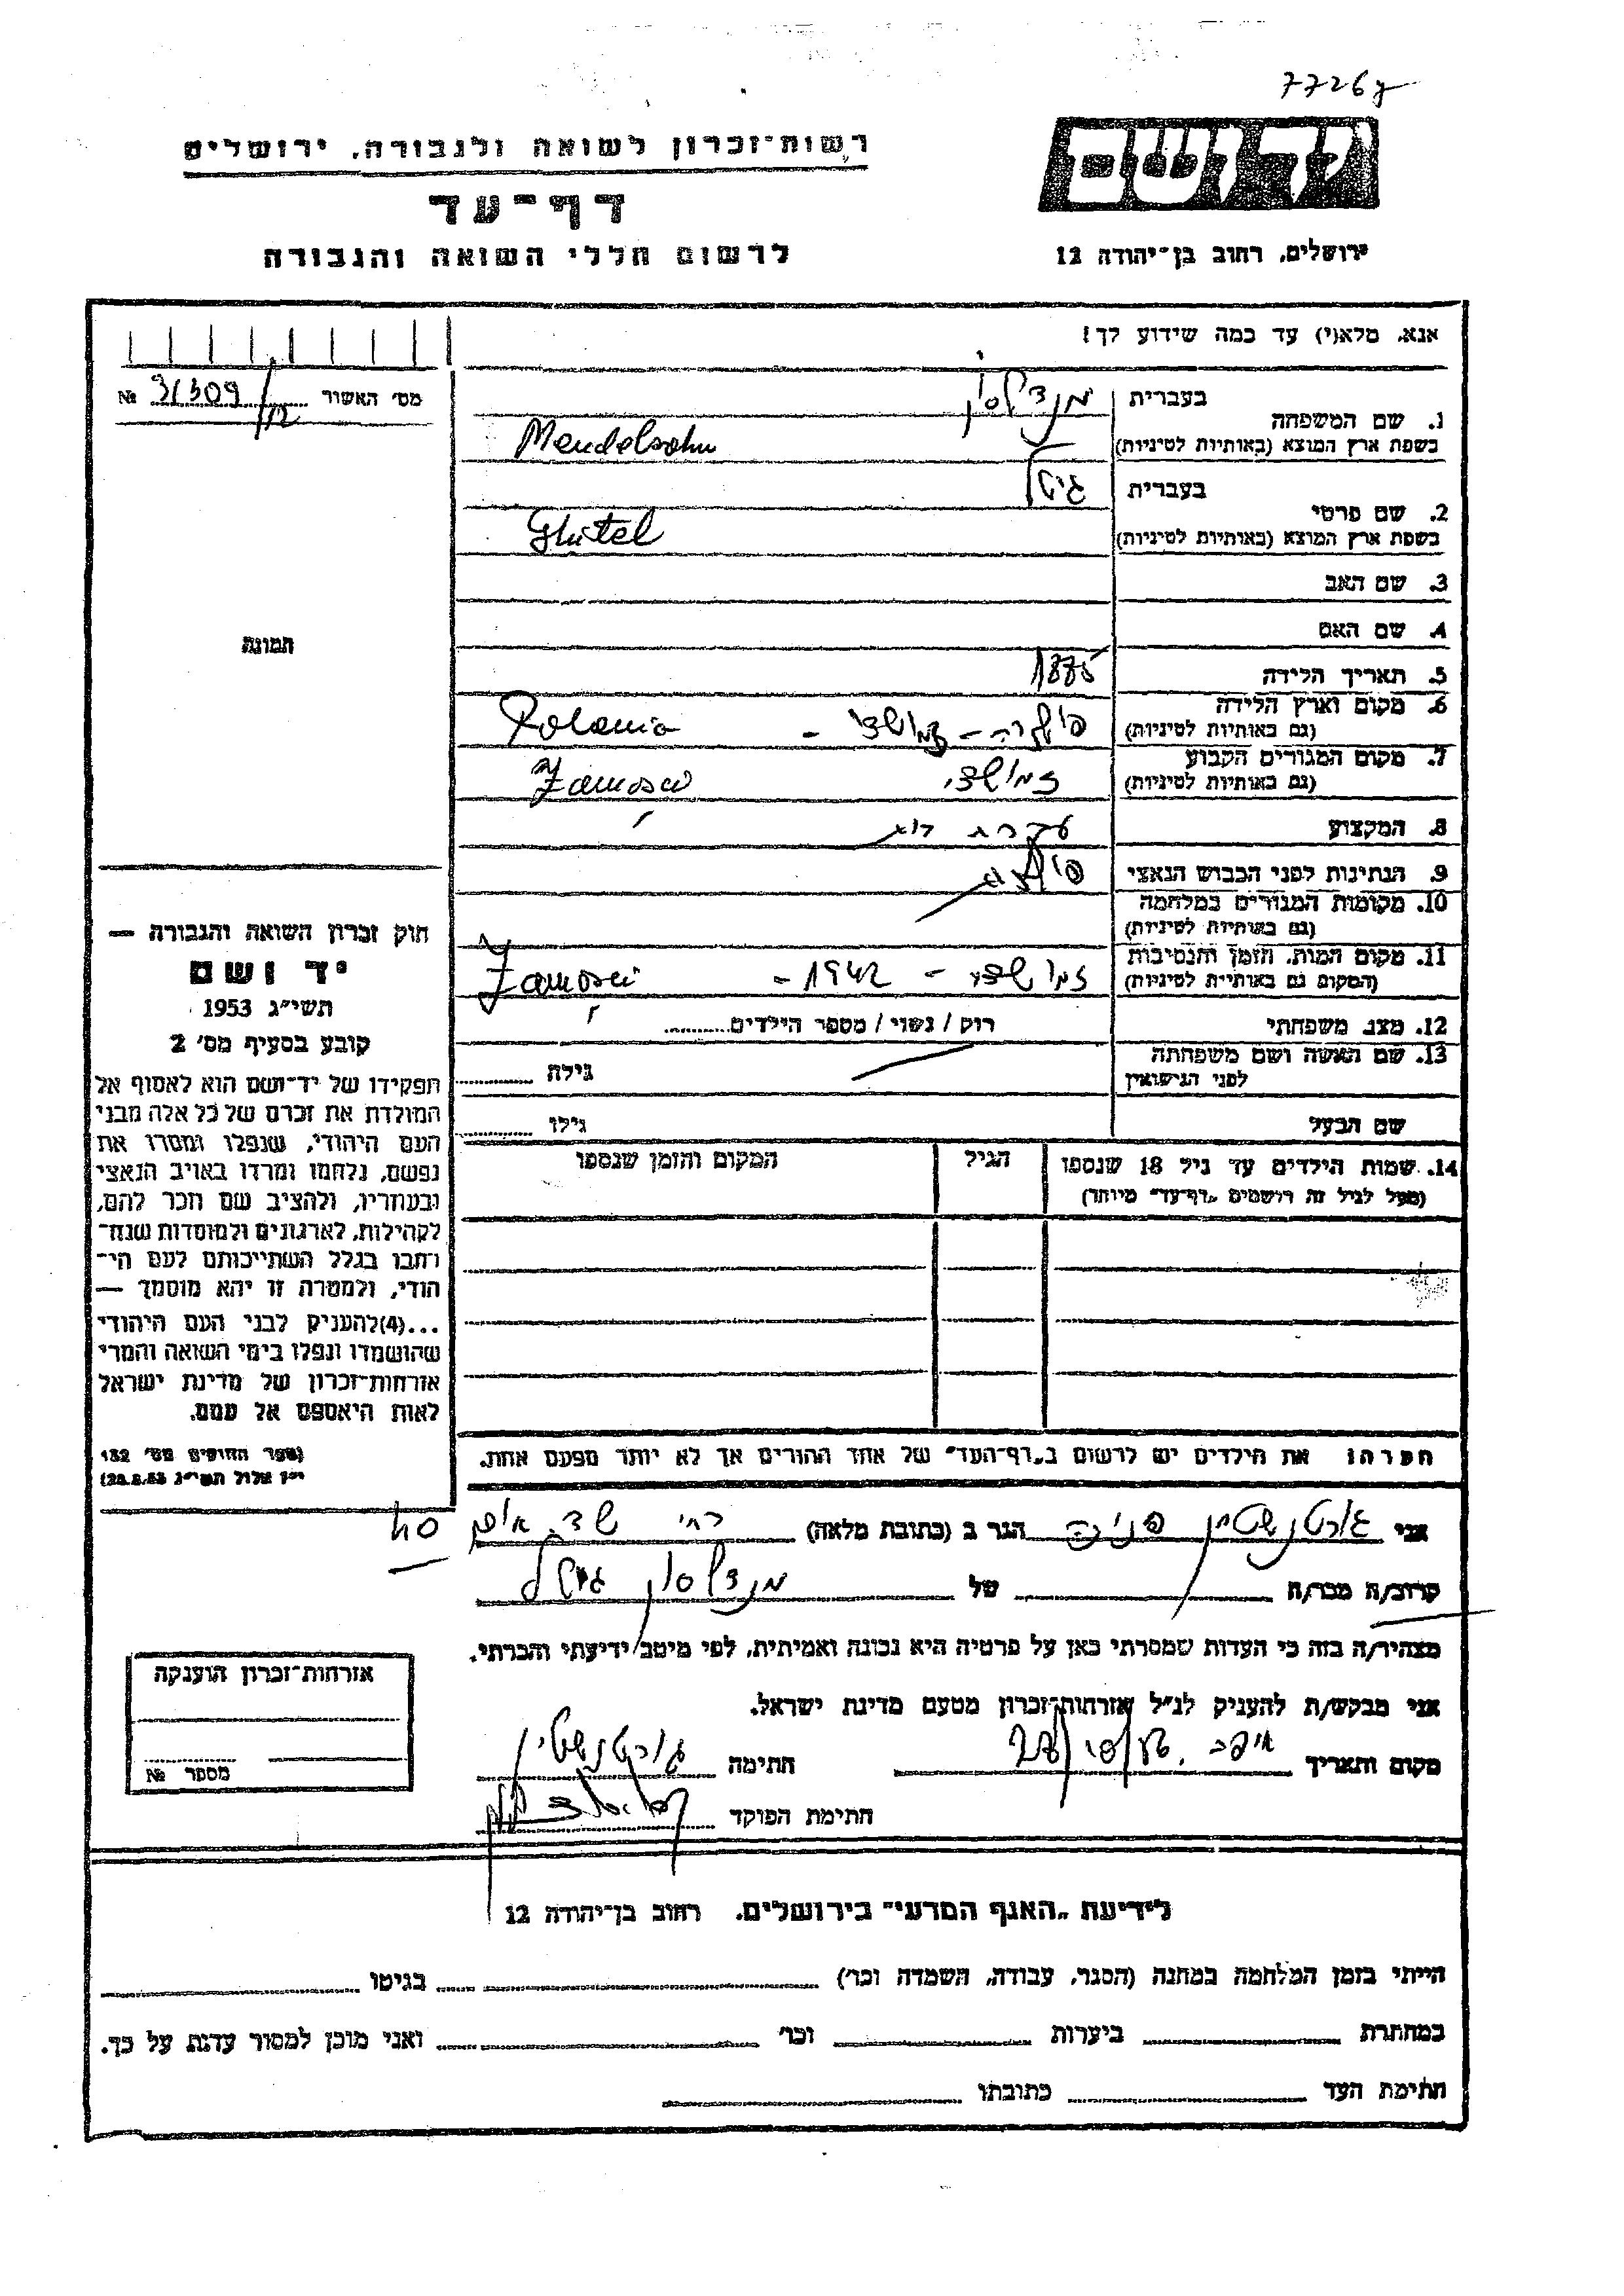 77267
רשות־זכרון לשואה ולגבורה, ירושלים
דף־עד
לרשום חללי השואה והגבורה
יד ושם
ירושלים, רחוב בן־יהודה 12
אנא, מלא(י) עד כמה שידוע לך!
מס' האשור 31309 №
1. שם המשפחה
בעברית מנדלסון
בשפת ארץ המוצא (באותיות לטיניות) Mendelsohn
2. שם פרטי
בעברית גיטל
בשפת ארץ המוצא (באותיות לטיניות) Ghitel
3. שם האב
4. שם האם
5. תאריך הלידה 1885
6. מקום וארץ הלידה
(גם באותיות לטיניות) פולניה – זמושץ – Polonia
7. מקום המגורים הקבוע
(גם באותיות לטיניות) זמושץ Zamosci
8. המקצוע עקרת בית
9. הנתינות לפני הכבוש הנאצי
10. מקומות המגורים במלחמה
(גם באותיות לטיניות)
11. מקום המות, הזמן והנסיבות
(המקום גם באותיות לטיניות) זמושץ – 1942 – Zamosci
12. מצב משפחתי רווק / נשוי / מספר הילדים
13. שם האשה ושם משפחתה
לפני הנישואין גילה
שם הבעל גילו
14. שמות הילדים עד גיל 18 שנספו
(מעל לגיל זה רושמים "דף־עד" מיוחד)
הגיל
המקום והזמן שנספו
תמונה
חוק זכרון השואה והגבורה —
יד ושם
תשי"ג 1953
קובע בסעיף מס' 2
תפקידו של יד־ושם הוא לאסוף אל
המולדת את זכרם של כל אלה מבני
העם היהודי, שנפלו ומסרו את
נפשם, נלחמו ומרדו באויב הנאצי
ובעוזריו, ולהציב שם וזכר להם,
לקהילות, לארגונים ולמוסדות שנח־
רבו בגלל השתייכותם לעם הי־
הודי, ולמטרה זו יהא מוסמך —
...(4)להעניק לבני העם היהודי
שהושמדו ונפלו בימי השואה והמרי
אזרחות־זכרון של מדינת ישראל
לאות היאספם אל עמם.
(ספר החוקים מס' 132
י"ז אלול תשי"ג 28.8.53)
הערה: את הילדים יש לרשום ב"דף־העד" של אחד ההורים אך לא יותר מפעם אחת.
אני גורטנשטיין פנינה הגר ב (כתובת מלאה) רח'
קרוב/ה מכר/ה של מנדלסון גיטל
מצהיר/ה בזה כי העדות שמסרתי כאן על פרטיה היא נכונה ואמיתית, לפי מיטב ידיעתי והכרתי.
אני מבקש/ת להעניק לנ"ל אזרחות־זכרון מטעם מדינת ישראל.
מקום ותאריך חתימה גורטנשטיין
חתימת הפוקד
אזרחות־זכרון הוענקה
מספר №
לידיעת "האגף המדעי" בירושלים, רחוב בן־יהודה 12
הייתי בזמן המלחמה במחנה (הסגר, עבודה, השמדה וכו') בגיטו
במחתרת ביערות וכו' ואני מוכן למסור עדות על כך.
חתימת העד כתובתו